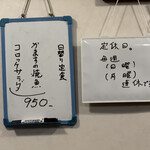 日替り定食
かますの焼魚
コロッケサラダ
950-
定休日。
毎週
(日曜)
(月曜)
連休です